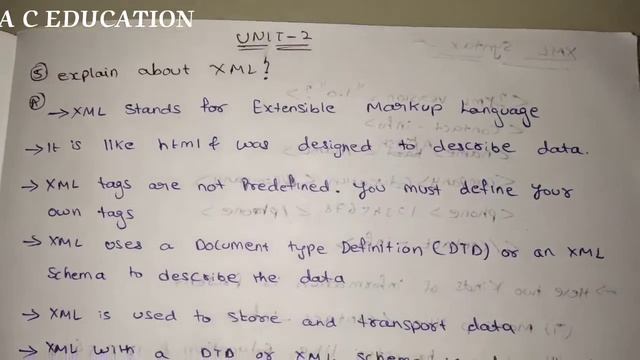 A C EDUCATION
UNIT-2
⑤ explain about XML?
Ⓐ →XML stands for Extensible Markup Language
→It is like html & was designed to describe data.
→ XML tags are not Predefined. You must define your
own tags
→ XML uses a Document type Definition (DTD) or an XML
Schema to describe the data
→ XML is used to store and transport data
→ XML with a DTD or XML schema